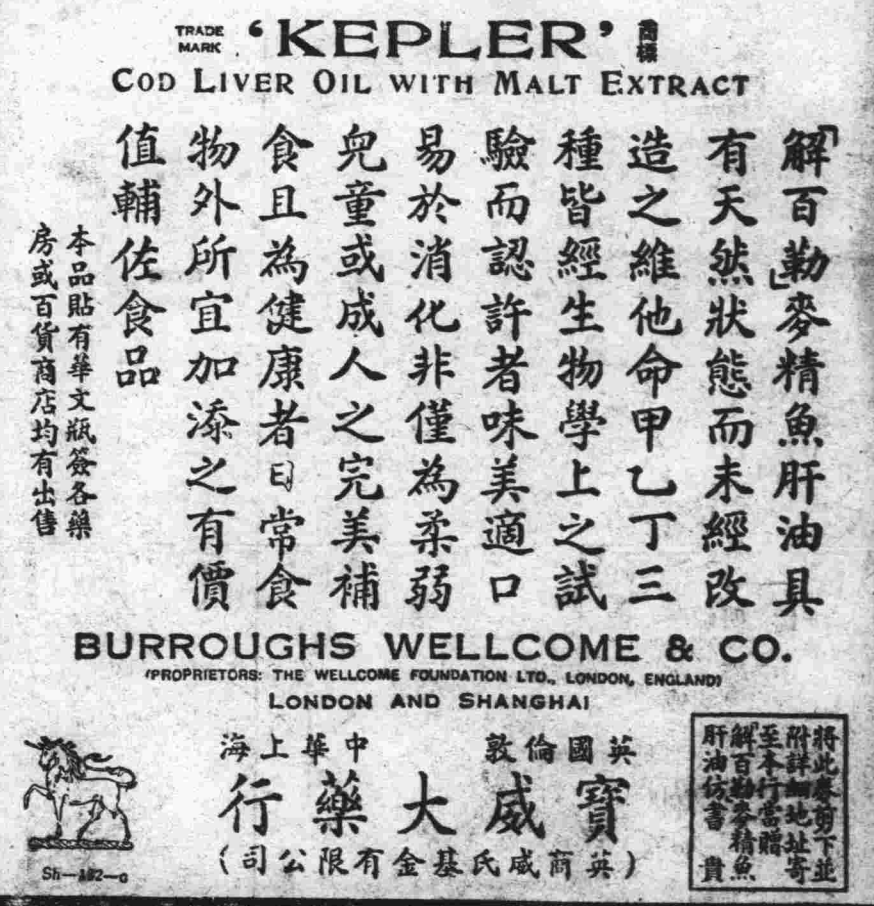 TRADE MARK 'KEPLER' 商標
COD LIVER OIL WITH MALT EXTRACT
「解百勒」麥精魚肝油具
有天然狀態而未經改
造之維他命甲乙丁三
種皆經生物學上之試
驗而認許者味美適口
易於消化非僅為柔弱
兒童或成人之完美補
食且為健康者日常食
物外所宜加添之有價
值輔佐食品
本品貼有華文瓶簽各藥
房或百貨商店均有出售
BURROUGHS WELLCOME & CO.
(PROPRIETORS: THE WELLCOME FOUNDATION LTD., LONDON, ENGLAND)
LONDON AND SHANGHAI
英國倫敦 中華上海
寶威大藥行
(英商威氏基金有限公司)
將此券剪下並
附詳細地址寄
至本行當贈
「解百勒麥精魚
肝油仿書 貴